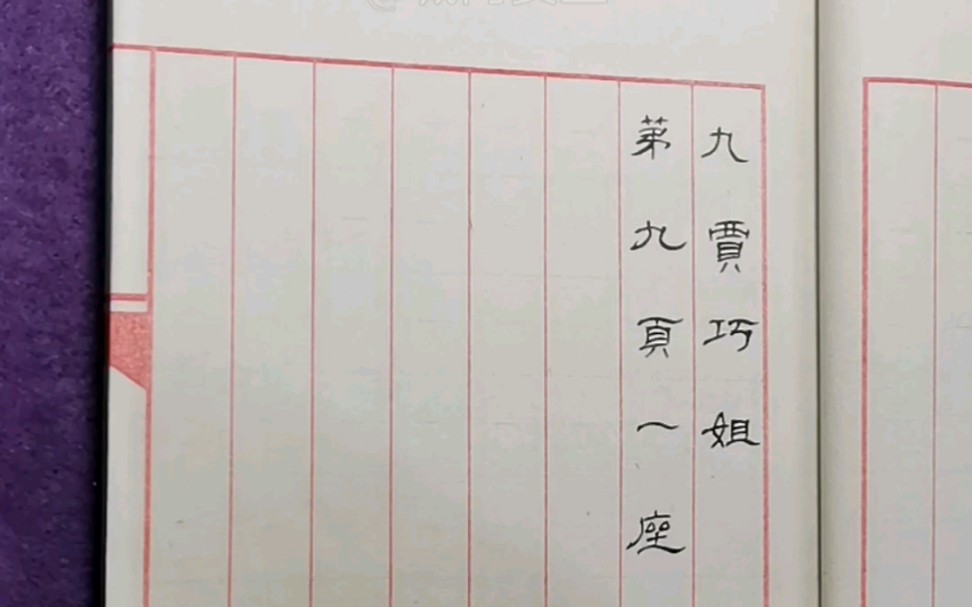 九賈巧姐
第九頁一座